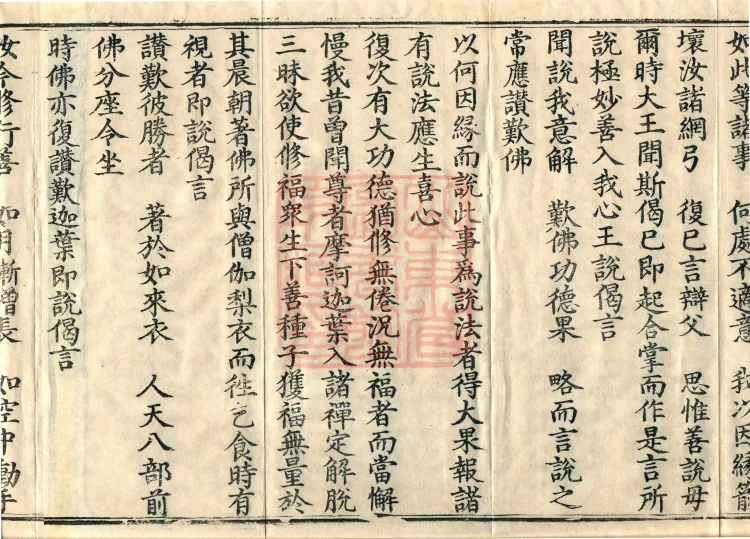 如此等諸事　何處不適意　我以因緣箭
壞汝諸網弓　復已言辯父　思惟善說母
爾時大王聞斯偈已即起合掌而作是言所
說極妙善入我心王說偈言
聞說我意解　歎佛功德果　略而言說之
常應讃歎佛
以何因緣而說此事為說法者得大果報諸
有說法應生喜心
復次有大功德猶修無倦況無福者而當懈
慢我昔曾聞尊者摩訶迦葉入諸禪定解脫
三昧欲使修福眾生下善種子獲福無量於
其晨朝著佛所與僧伽梨衣而徃乞食時有
視者即說偈言
讃歎彼勝者　著於如來衣　人天八部前
佛分座令坐
時佛亦復讃歎迦葉即說偈言
汝今修行善　如月漸增長　如空中動手